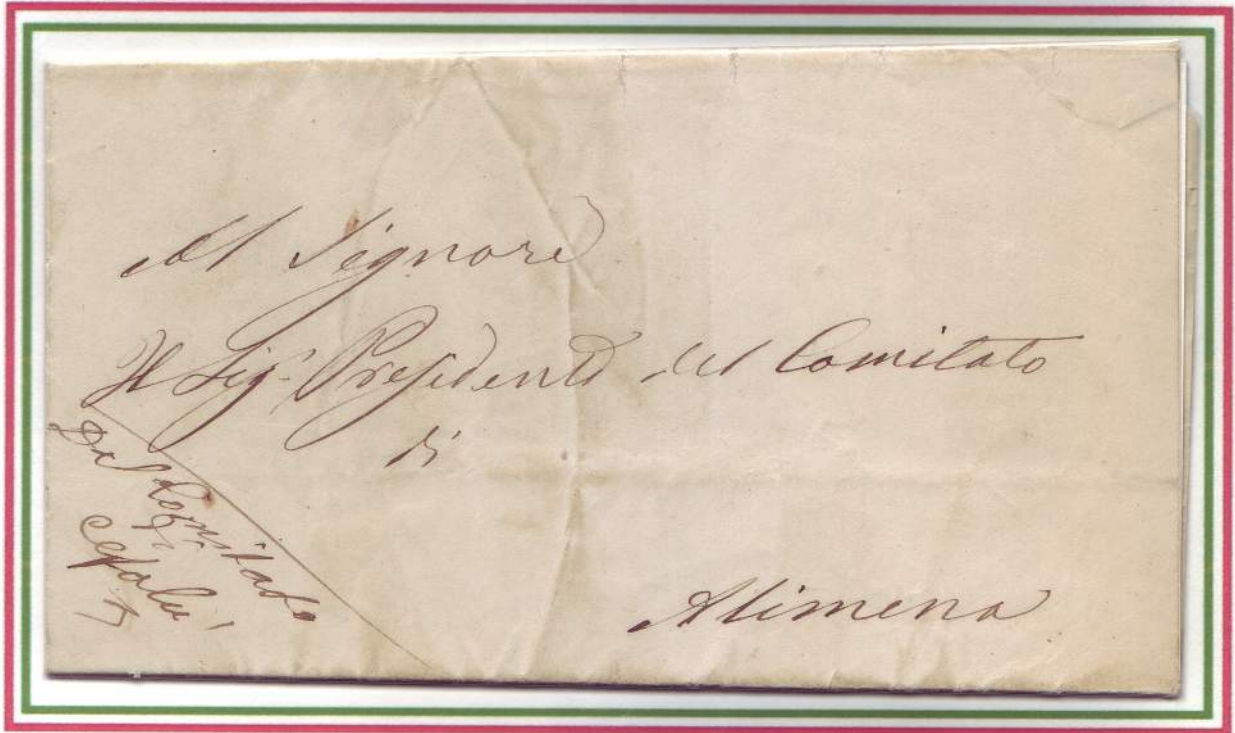 Al Signore
Il Sig.r Presidente del Comitato
di
Alimena
Dal Comitato
di
Cefalù